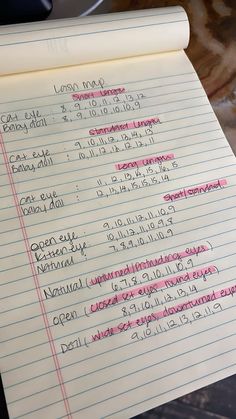 Lash map
Short lengths
Cat eye : 8, 9, 10, 11, 12, 13, 12
Baby doll : 8, 9, 10, 10, 10, 9
Standard lengths
Cat eye : 9, 10, 11, 12, 14, 13
Baby doll : 10, 11, 12, 12, 12, 11
Long lengths
cat eye : 11, 12, 13, 15, 16, 15
baby doll : 12, 13, 14, 15, 15, 14
Short/Standard
Open eye : 9, 10, 11, 12, 11, 10, 9
Kitten eye : 10, 11, 12, 11, 10, 9, 8
Natural : 7, 8, 9, 10, 11, 10, 9
Natural (upturned/Protruding eyes)
6, 7, 8, 9, 10, 11, 10, 9
Open (closed set eyes, round eyes)
8, 9, 10, 11, 12, 13, 14
Doll (wide set eyes, downturned eyes)
9, 10, 11, 12, 13, 12, 11, 9